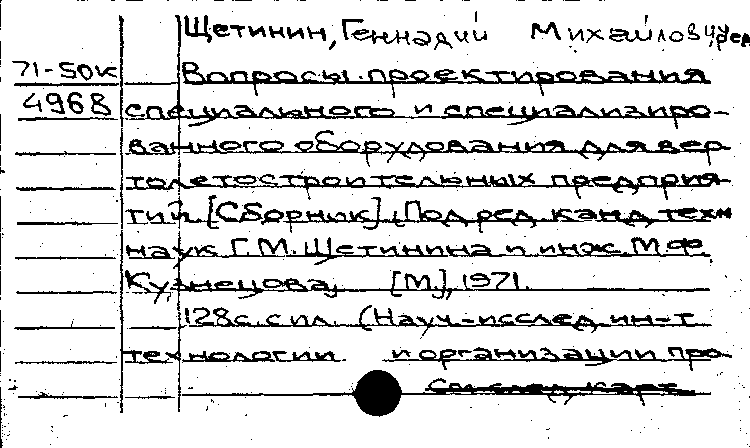 Щетинин, Геннадий Михайлович, ред.
71-50к Вопросы проектирования
4968 специального и специализиро-
ванного оборудования для вер-
толетостроительных предприя-
тий. [Сборник]. (Под ред. канд. техн.
наук Г.М. Щетинина и инж. М.Ф.
Кузнецова, [М.], 1971.
128 с. с ил. (Науч.-исслед. ин-т
технологии и организации про-
См. след. карт.